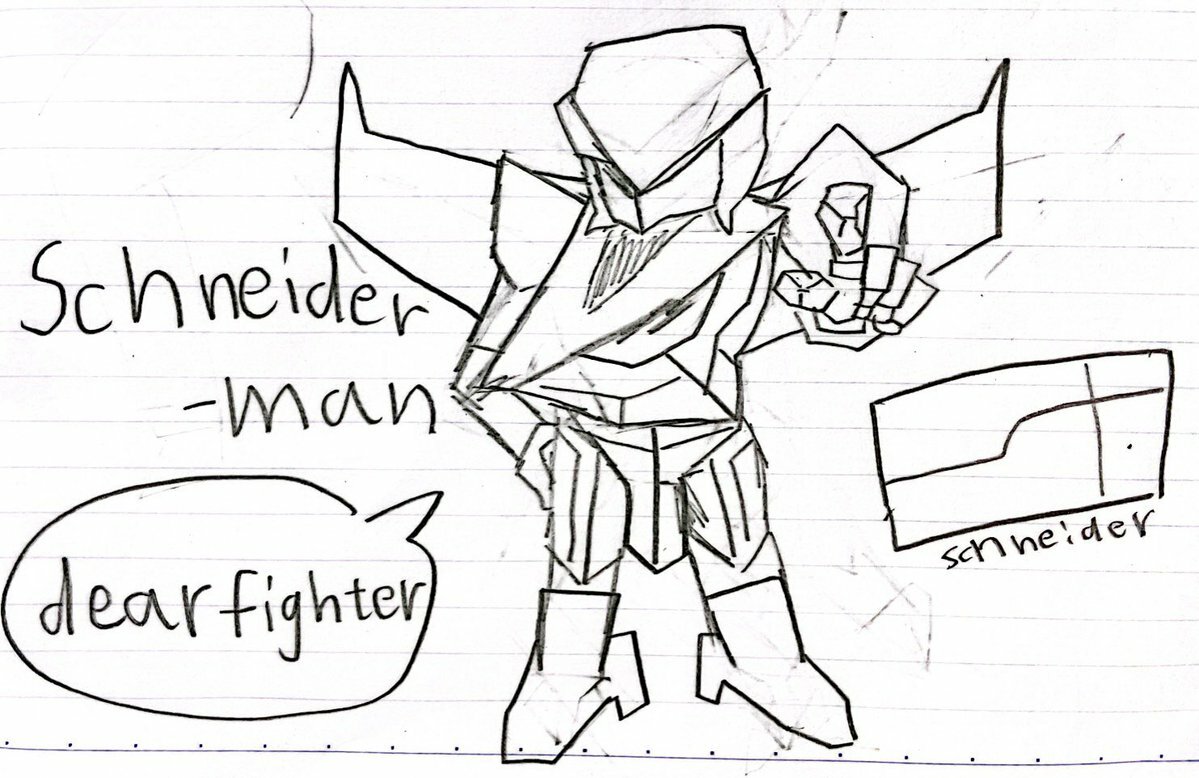 Schneider
-man
dearfighter
schneider